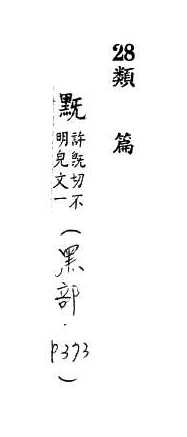 28 類篇
許旣切不
明皃文一
(黑部·P373)